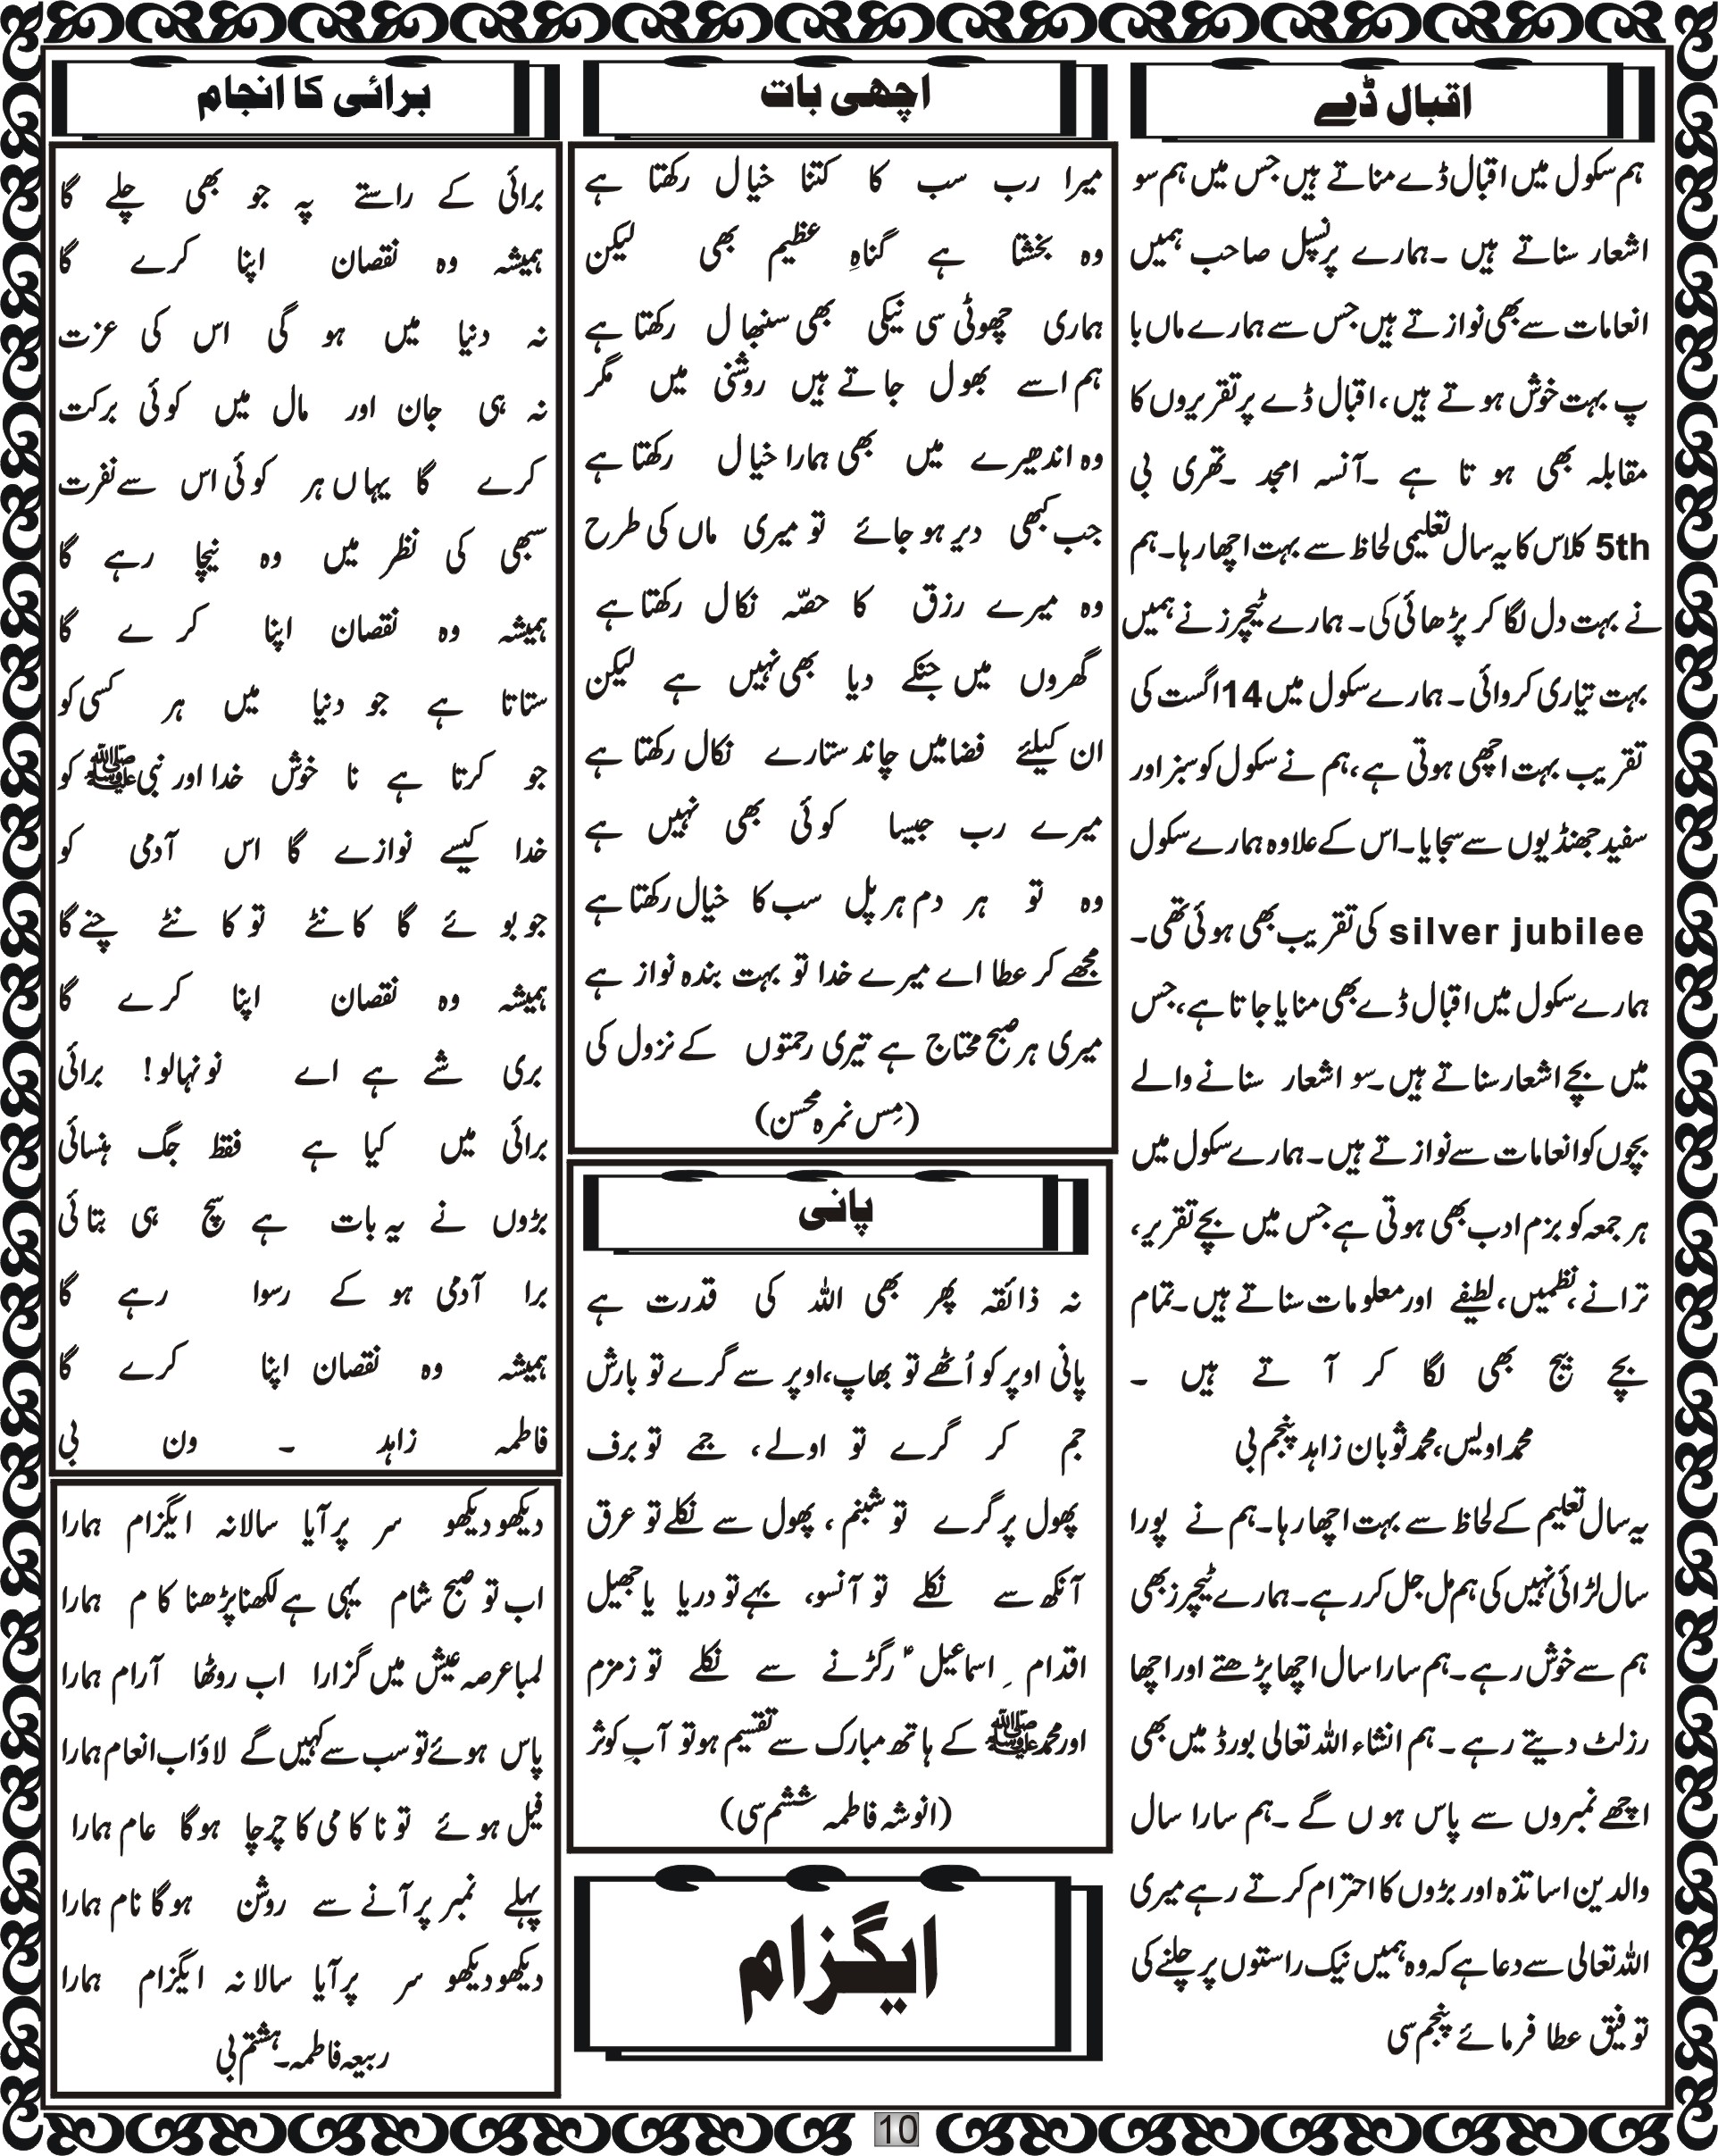 اقبال ڈے
ہم سکول میں اقبال ڈے مناتے ہیں جس میں ہم سو
اشعار سناتے ہیں ۔ہمارے پرنسپل صاحب ہمیں
انعامات سے بھی نوازتے ہیں جس سے ہمارے ماں با
پ بہت خوش ہوتے ہیں، اقبال ڈے پر تقریروں کا
مقابلہ بھی ہو تا ہے ۔آنسہ امجد ۔تھری بی
5th کلاس کا یہ سال تعلیمی لحاظ سے بہت اچھا رہا۔ ہم
نے بہت دل لگا کر پڑھائی کی۔ ہمارے ٹیچرز نے ہمیں
بہت تیاری کروائی ۔ ہمارے سکول میں 14 اگست کی
تقریب بہت اچھی ہوتی ہے، ہم نے سکول کو سبز اور
سفید جھنڈیوں سے سجایا۔ اس کے علاوہ ہمارے سکول
silver jubilee کی تقریب بھی ہوئی تھی۔
ہمارے سکول میں اقبال ڈے بھی منایا جاتا ہے، جس
میں بچے اشعار سناتے ہیں۔ سو اشعار سنانے والے
بچوں کو انعامات سے نوازتے ہیں۔ ہمارے سکول میں
ہر جمعہ کو بزم ادب بھی ہوتی ہے جس میں بچے تقریر،
ترانے، نظمیں، لطیفے اور معلومات سناتے ہیں۔ تمام
بچے بیج بھی لگا کر آ تے ہیں ۔
محمد اویس، محمد ثوبان زاہد پنجم بی
یہ سال تعلیم کے لحاظ سے بہت اچھا رہا۔ ہم نے پورا
سال لڑائی نہیں کی ہم مل جل کر رہے۔ ہمارے ٹیچرز بھی
ہم سے خوش رہے۔ ہم سارا سال اچھا پڑھتے اور اچھا
رزلٹ دیتے رہے ۔ ہم انشاء اللہ تعالی بورڈ میں بھی
اچھے نمبروں سے پاس ہو ں گے ۔ہم سارا سال
والدین اساتذہ اور بڑوں کا احترام کرتے رہے میری
اللہ تعالی سے دعا ہے کہ وہ ہمیں نیک راستوں پر چلنے کی
توفیق عطا فرمائے پنجم سی
اچھی بات
میرا رب سب کا کتنا خیال رکھتا ہے
وہ بخشتا ہے گناہِ عظیم بھی لیکن
ہماری چھوٹی سی نیکی بھی سنبھال رکھتا ہے
ہم اسے بھول جاتے ہیں روشنی میں مگر
وہ اندھیرے میں بھی ہمارا خیال رکھتا ہے
جب کبھی دیر ہو جائے تو میری ماں کی طرح
وہ میرے رزق کا حصّہ نکال رکھتا ہے
گھروں میں جنکے دیا بھی نہیں ہے لیکن
ان کیلئے فضا میں چاند ستارے نکال رکھتا ہے
میرے رب جیسا کوئی بھی نہیں ہے
وہ تو ہر دم ہر پل سب کا خیال رکھتا ہے
مجھے کر عطا اے میرے خدا تو بہت بندہ نواز ہے
میری ہر صبح محتاج ہے تیری رحمتوں کے نزول کی
(مِس نمرہ محسن)
پانی
نہ ذائقہ پھر بھی اللہ کی قدرت ہے
پانی اوپر کو اُٹھے تو بھاپ، اوپر سے گرے تو بارش
جم کر گرے تو اولے، جمے تو برف
پھول پر گرے تو شبنم ، پھول سے نکلے تو عرق
آنکھ سے نکلے تو آنسو، بہے تو دریا یا جھیل
اقدام ِ اسماعیل ؑ رگڑنے سے نکلے تو زمزم
اور محمد ﷺ کے ہاتھ مبارک سے تقسیم ہو تو آبِ کوثر
(انوشہ فاطمہ ششم سی)
ایگزام
برائی کا انجام
برائی کے راستے پہ جو بھی چلے گا
ہمیشہ وہ نقصان اپنا کرے گا
نہ دنیا میں ہو گی اس کی عزت
نہ ہی جان اور مال میں کوئی برکت
کرے گا یہاں ہر کوئی اس سے نفرت
سبھی کی نظر میں وہ نیچا رہے گا
ہمیشہ وہ نقصان اپنا کر ے گا
ستاتا ہے جو دنیا میں ہر کسی کو
جو کرتا ہے نا خوش خدا اور نبی ﷺ کو
خدا کیسے نوازے گا اس آدمی کو
جو بو ئے گا کانٹے تو کا نٹے چنے گا
ہمیشہ وہ نقصان اپنا کرے گا
بری شے ہے اے نونہالو! برائی
برائی میں کیا ہے فقط جگ ہنسائی
بڑوں نے یہ بات ہے سچ ہی بتائی
برا آدمی ہو کے رسوا رہے گا
ہمیشہ وہ نقصان اپنا کرے گا
فاطمہ زاہد ۔ ون بی
دیکھو دیکھو سر پر آیا سالانہ ایگزام ہمارا
اب تو صبح شام یہی ہے لکھنا پڑھنا کام ہمارا
لمبا عرصہ عیش میں گزارا اب روٹھا آرام ہمارا
پاس ہوئے تو سب سے کہیں گے لاؤ اب انعام ہمارا
فیل ہوئے تو نا کامی کا چرچا ہوگا عام ہمارا
پہلے نمبر پر آنے سے روشن ہوگا نام ہمارا
دیکھو دیکھو سر پر آیا سالانہ ایگزام ہمارا
ربیعہ فاطمہ۔ ہشتم بی
10